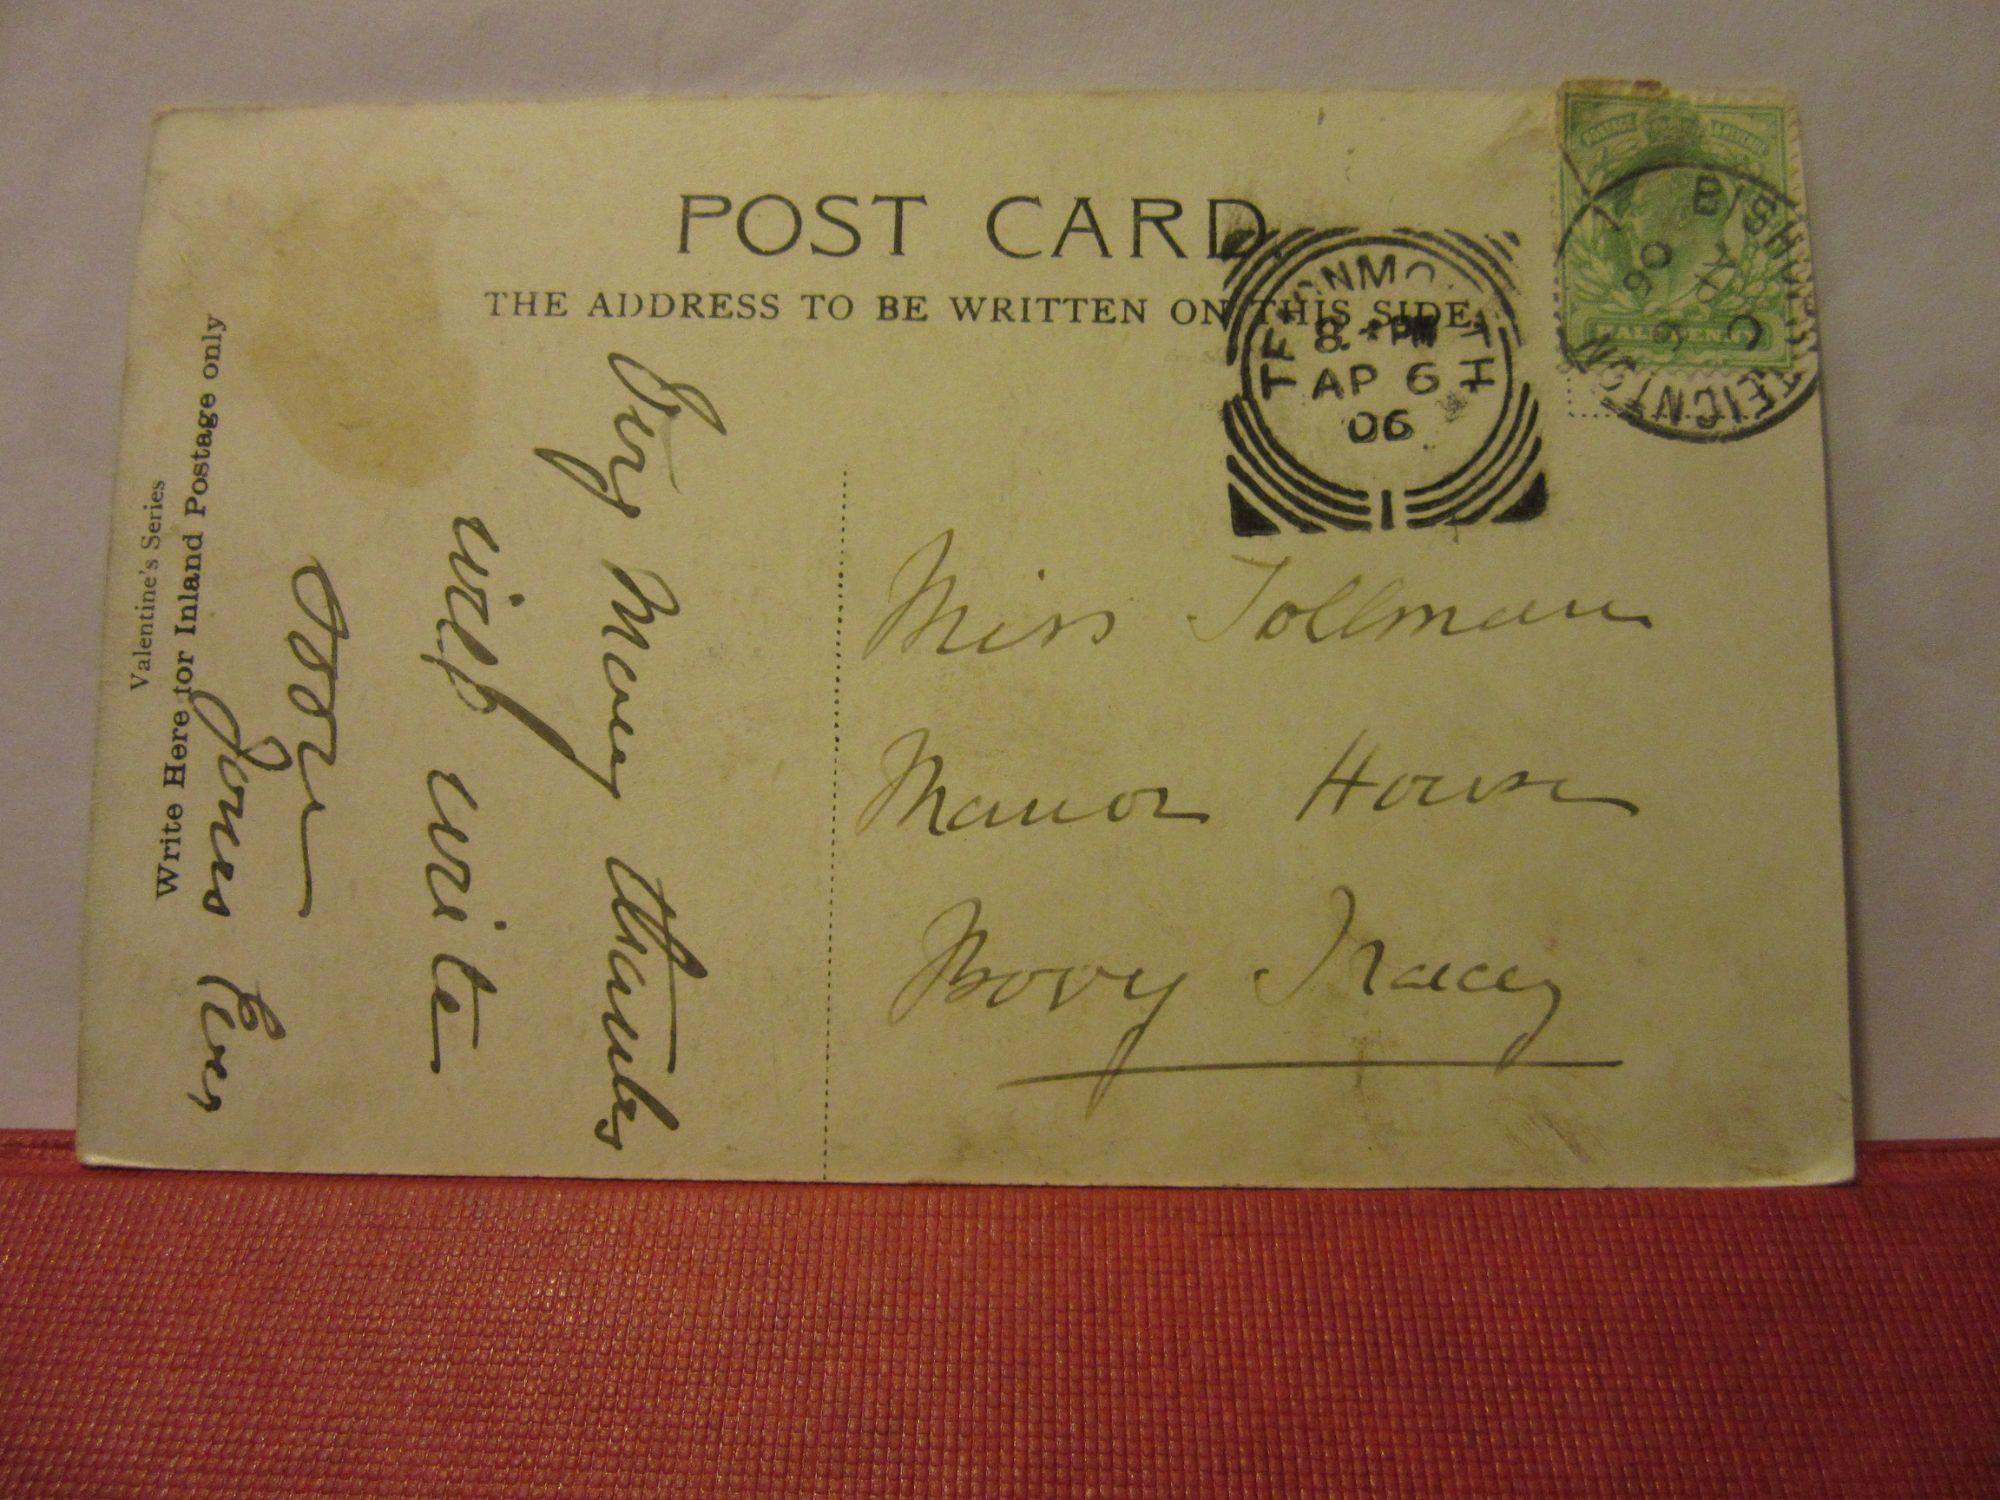 POST CARD
THE ADDRESS TO BE WRITTEN ON THIS SIDE.
Valentine's Series
Write Here for Inland Postage only
Very Many thanks
will write
soon
Yours Ever
Miss Tollman
Manor House
Bovy Tracey
TEIGNMOUTH
8. PM
AP 6
06
1
POSTAGE REVENUE
HALFPENNY
BISHOPSTEIGNTON
C
AP 6
06